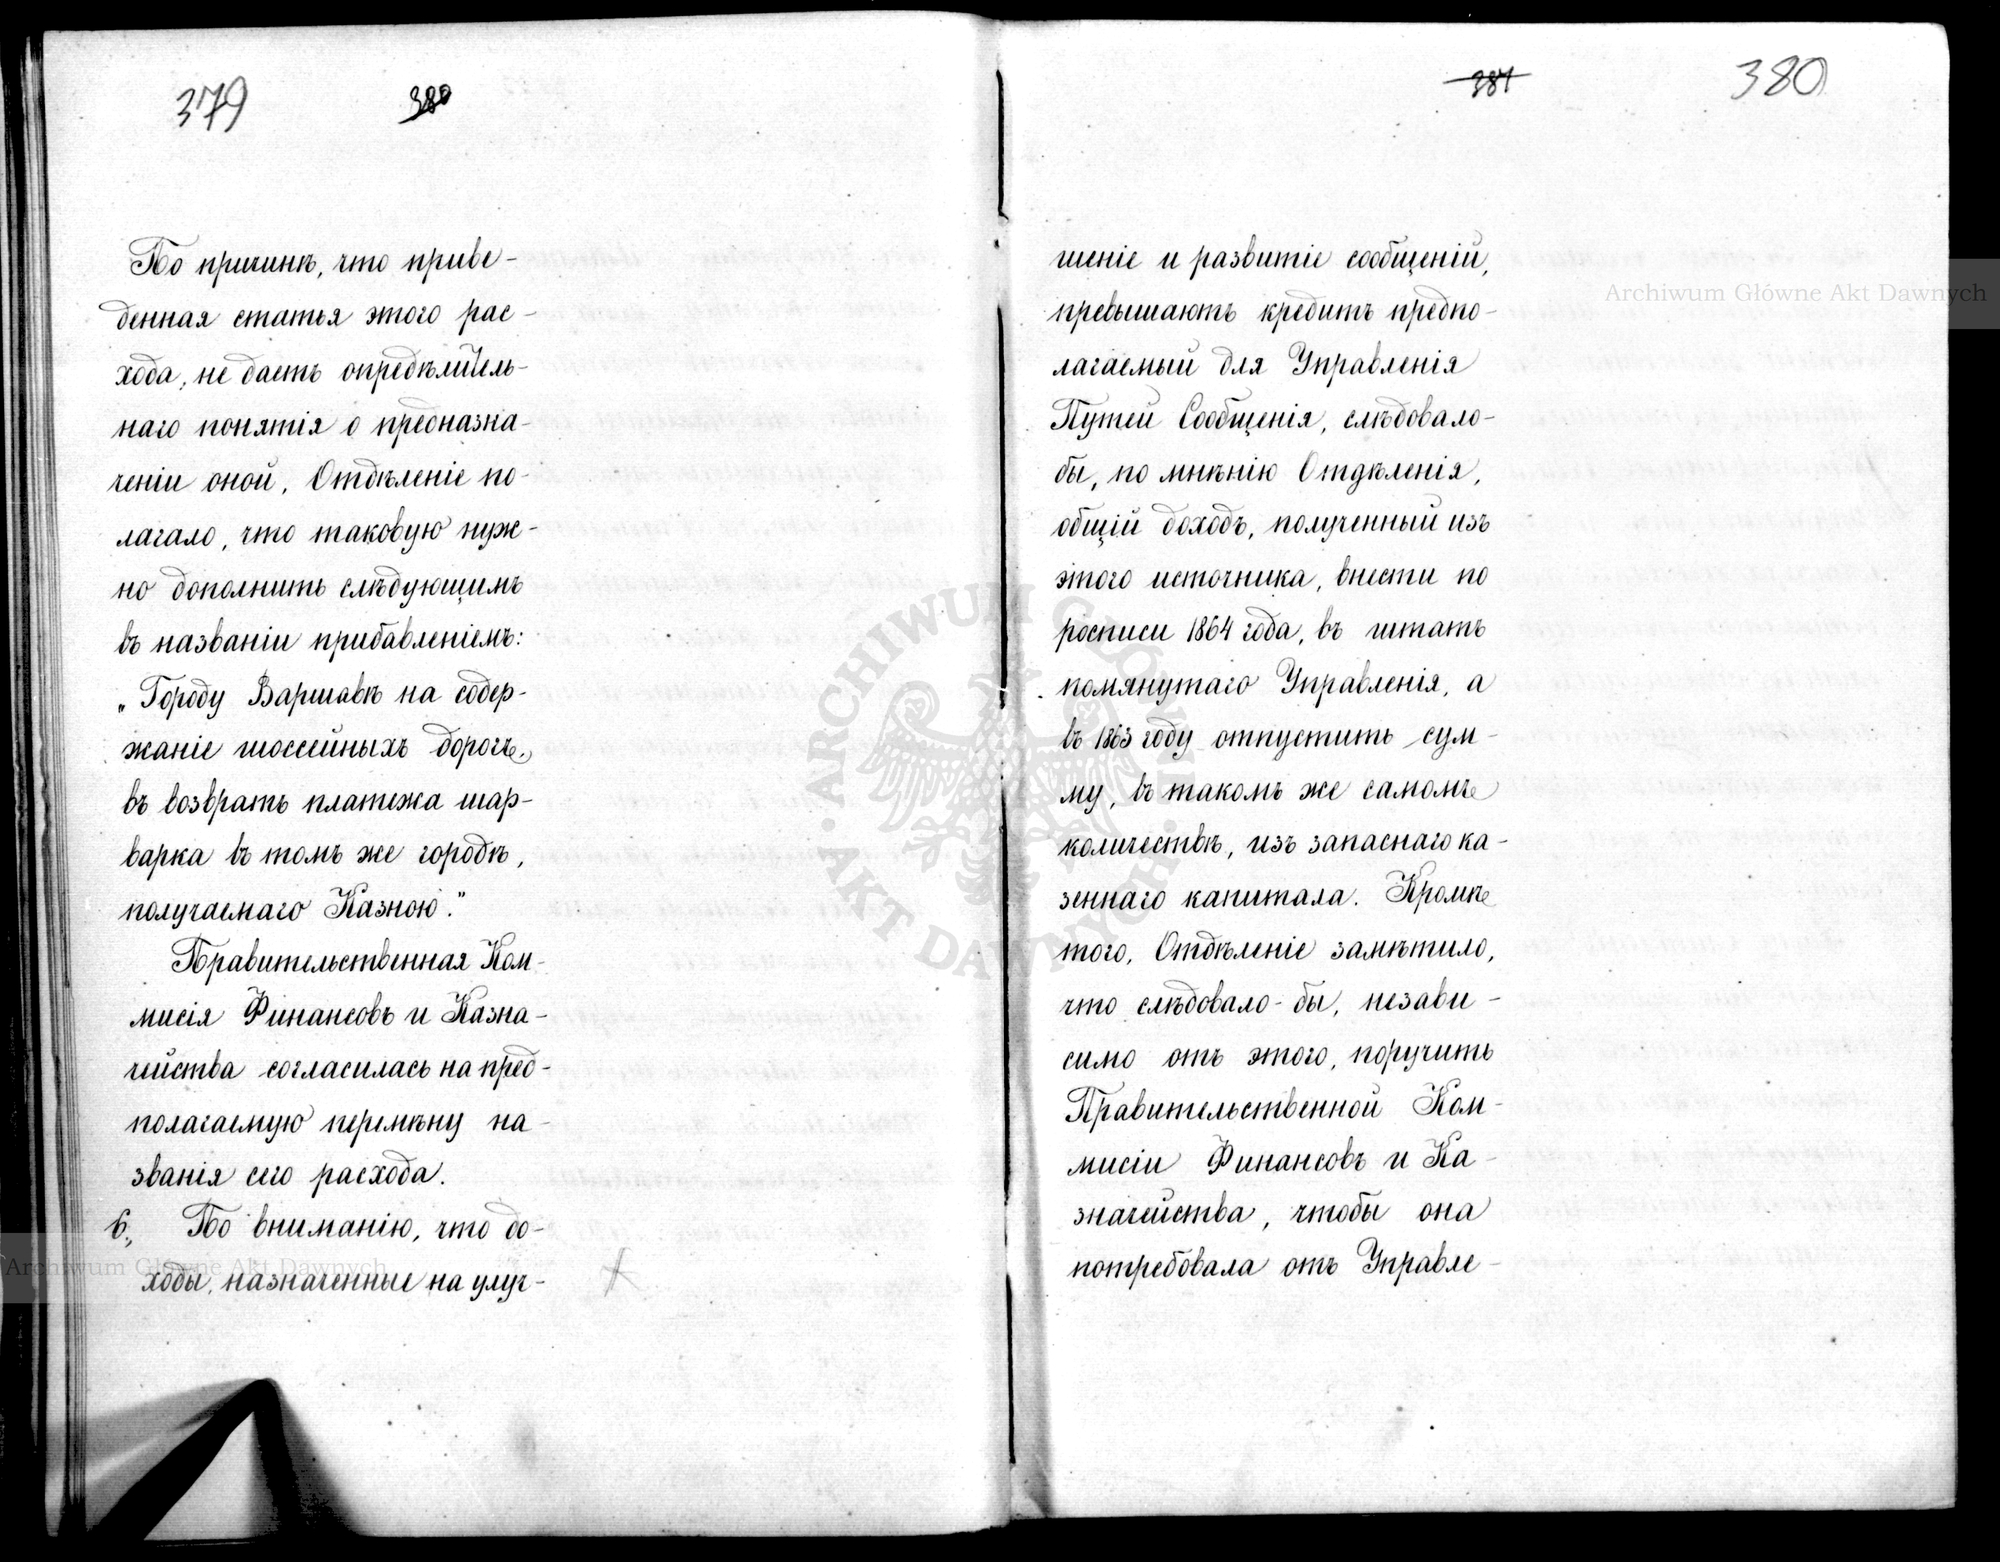 379
380
По причинѣ, что приве-
денная статья этого рас-
хода, не даетъ опредѣлитель-
наго понятія о предназна-
ченіи оной, Отдѣленіе по-
лагало, что таковую нуж-
но дополнить слѣдующимъ
въ названіи прибавленіемъ:
„Городу Варшавѣ на содер-
жаніе шоссейныхъ дорогъ,
въ возвратъ платежа шар-
варка въ томъ же городѣ,
получаемаго Казною."
Правительственная Ком-
мисія Финансовъ и Казна-
чейства согласилась на пред-
полагаемую перемѣну на-
званія сего расхода.
6., По вниманію, что до-
ходы, назначенные на улуч-
381
380
шеніе и развитіе сообщеній,
превышаютъ кредитъ предпо-
лагаемый для Управленія
Путей Сообщенія, слѣдовало-
бы, по мнѣнію Отдѣленія,
общій доходъ, полученный изъ
этого источника, внести по
росписи 1864 года, въ штатъ
помянутаго Управленія, а
въ 1863 году отпустить сум-
му, въ такомъ же самомъ
количествѣ, изъ запаснаго ка-
зеннаго капитала. Кромѣ
того, Отдѣленіе замѣтило,
что слѣдовало-бы, незави-
симо отъ этого, поручить
Правительственной Ком-
мисіи Финансовъ и Ка-
значейства, чтобы она
потребовала отъ Управле-
Archiwum Główne Akt Dawnych
Archiwum Główne Akt Dawnych
ARCHIWUM GŁÓWNE · AKT DAWNYCH ·